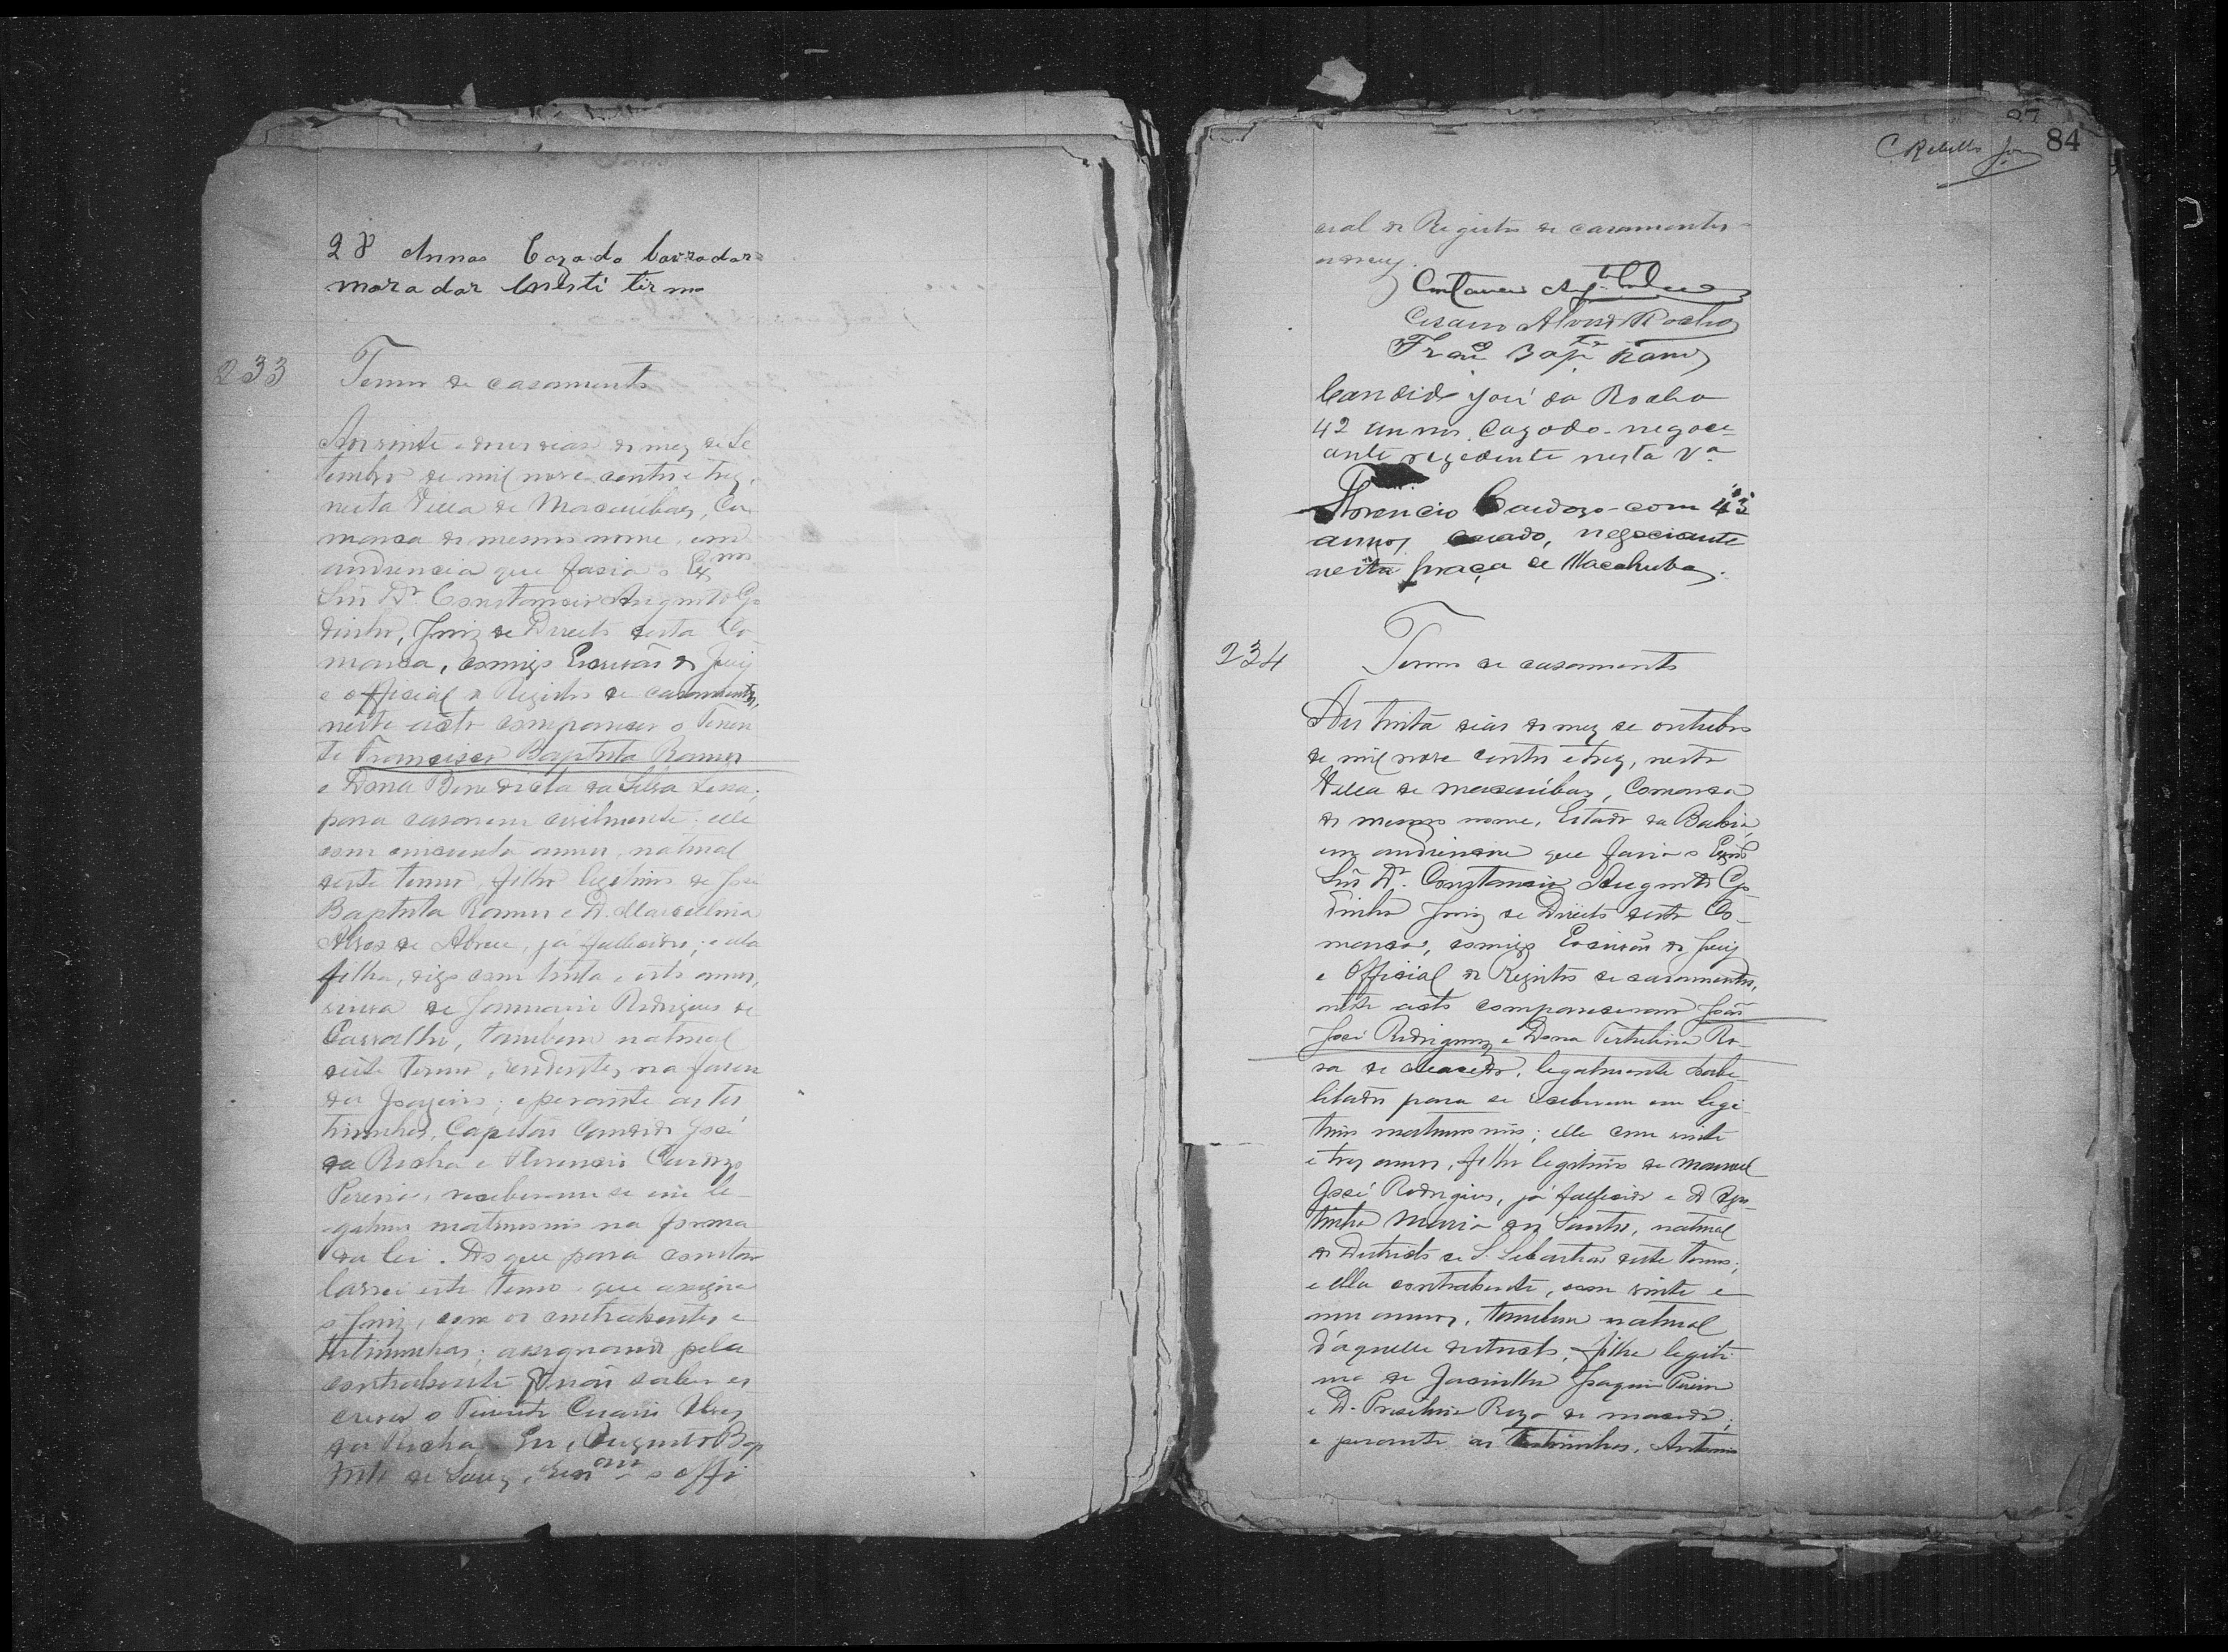 28 Annos Cazado lavrador
morador Nesti tirmo
233
Termo de casamento
Aos vinte e dias do mez de Se
tembro de mil nove centos e trez,
nesta Villa de Macaúbas, Co
marca do mesmo nome, em
audiencia que fasia o Exmo
Snr Dr. Constancio Augusto Go
dinho, Juiz de Direito desta Co
marca, comigo Escrivão do Juiz
e official do Registro de casamentos,
neste acto compareceu o Tenen
te Francisco Baptista Ramos
e Dona Benedicta da Silva Lessa;
para casarem civilmente; elle
com cincoenta annos, natural
deste termo, filho legitimo de José
Baptista Ramos e D. Marcellina
Alves de Abreu, já fallecidos; e ella
filha, digo com trinta e oito annos,
viuva de Januario Rodrigues de
Carvalho, tambem natural
deste termo, residentes na fasen
da; e perante as tes
timunhas, Capitão Candido José
da Rocha e Florencio Cardozo
Pereira, receberam-se em le
gitimo matrimonio na forma
da lei. Do que para constar
lavrei este termo que assigna
o Juiz, com os contrahentes e
testimunhas; assignando pela
contrahente não saber es
crever o Tenente Cesario Alves
da Rocha. Eu, Augusto Bap
tista de Souz, o offi
84
C Rebello Jor
cial do Registro de casamentos
Constancio Augto Godinho
Cesario Alves da Rocha
Franco Bapta Ramos
Candido José da Rocha
42 annos. Cazado-negoci=
ante rezedente nesta Va
Florencio Cardozo-com 43
annos casado, negociante
nesta praça de Macahubas.
234
Termo de casamento
Aos trinta dias do mez de outubro
de mil nove centos e trez, nesta
Villa de Macaúbas, Comarca
do mesmo nome, Estado da Bahia,
em audiencia que fasia o Exmo
Snr Dr. Constancio Augusto Go
dinho Juiz de Direito desta Co-
marca, comigo Escrivão do Juiz
e Official do Registro de casamentos,
neste acto compareceram João
José Rodrigues e Dona Tertulina Ro-
sa de Macedo, legalmente habe
litados para se receberem em legi
timo matrimonio; elle com vinte
e tres annos, filho legitimo de Manoel
José Rodrigues, já fallecido e D.
Maria dos Santos, natural
do Districto de S. Sebastião deste termo;
e ella contrahente, com vinte e
um annos, tambem natural
d'aquelle districto, filha legiti
ma de Jacintho Joaquim Pereira
e D. Roza de Macedo;
e perante as testimunhas, Antonio